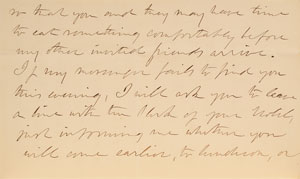 so that you and they may have time
to eat something comfortably before
my other invited friends arrive.
If my messenger fails to find you
this evening, I will ask you to leave
a line with the Clerk of your Hotel,
just informing me whether you
will come earlier, to luncheon, or